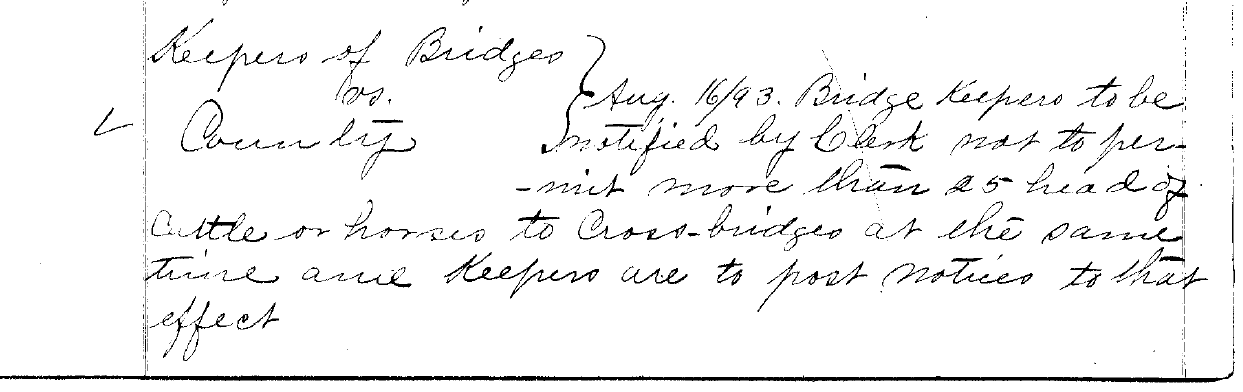 Keepers of Bridges
vs.
County
Aug. 16/93. Bridge Keepers to be
notified by Clerk not to per-
-mit more than 25 head of
Cattle or horses to Cross-bridges at the same
time and Keepers are to post notices to that
effect